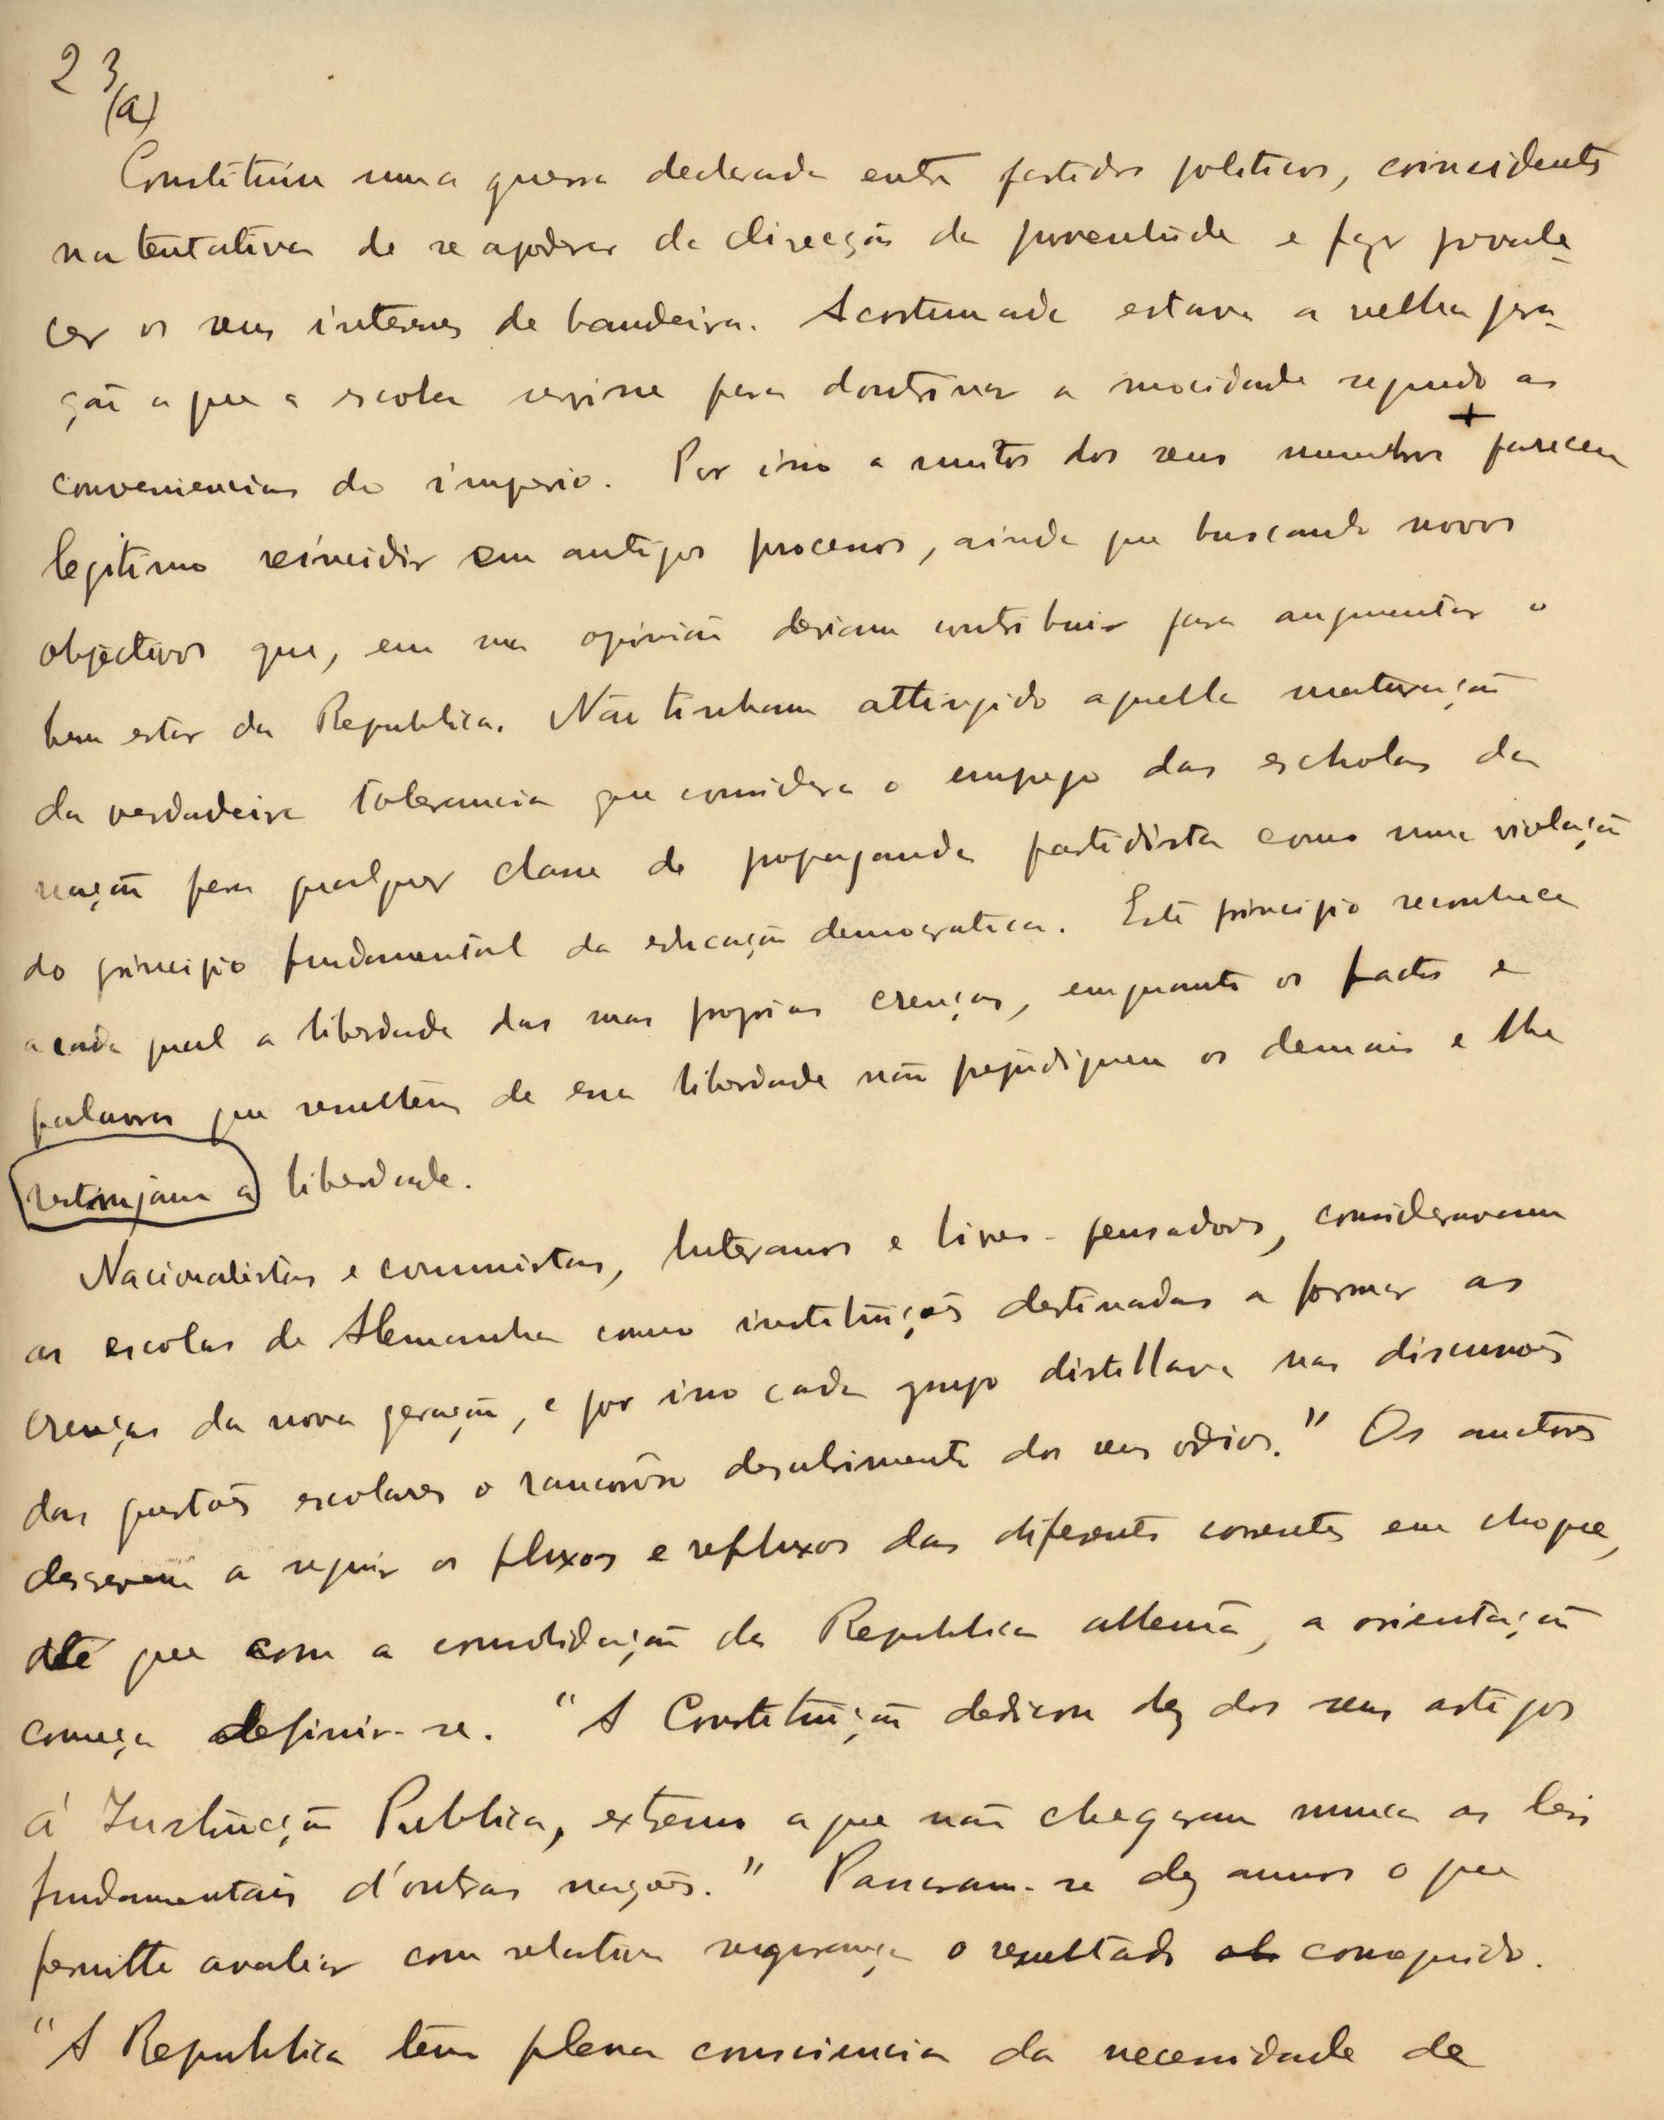 23
(a)
Constituiu uma guerra declarada entre partidos politicos, coincidentes
na tentativa de se apoderar da direcção da juventude e fazer prevale-
cer os seus interesses de bandeira. Acostumada estava a velha gera-
ção a que a escola servisse para doutrinar a mocidade segundo as
conveniencias do imperio. Por isso a muitos dos seus membros + pareceu
legitimo reincidir em antigos processos, ainda que buscando novos
objectivos que, em sua opinião deviam contribuir para augmentar o
bem estar da Republica. Não tinham attingido aquella maturação
da verdadeira tolerancia que considera o emprego das escholas da
nação para qualquer classe de propaganda partidista como uma violação
do principio fundamental da educação democratica. Este principio reconhece
a cada qual a liberdade das suas proprias crenças, emquanto os factos e
palavras que resultem de essa liberdade não prejudiquem os demais e lhe
restrinjam a liberdade.
Nacionalistas e communistas, luteranos e livres-pensadores, consideravam
as escolas de Alemanha como instituições destinadas a formar as
crenças da nova geração, e por isso cada grupo distillava nas discussões
das questões escolares o rancoroso descobrimento dos seus odios." Os auctores
descrevem a seguir os fluxos e refluxos das diferentes correntes em choque,
até que com a consolidação da Republica allemã, a orientação
começa definir-se. "A Constituição dedicou dez dos seus artigos
á Instrucção Publica, extremo a que não chegaram nunca as leis
fundamentais d'outras nações." Passaram-se dez annos o que
permitte avaliar com relativa segurança o resultado conseguido.
"A Republica tem plena consciencia da necessidade de